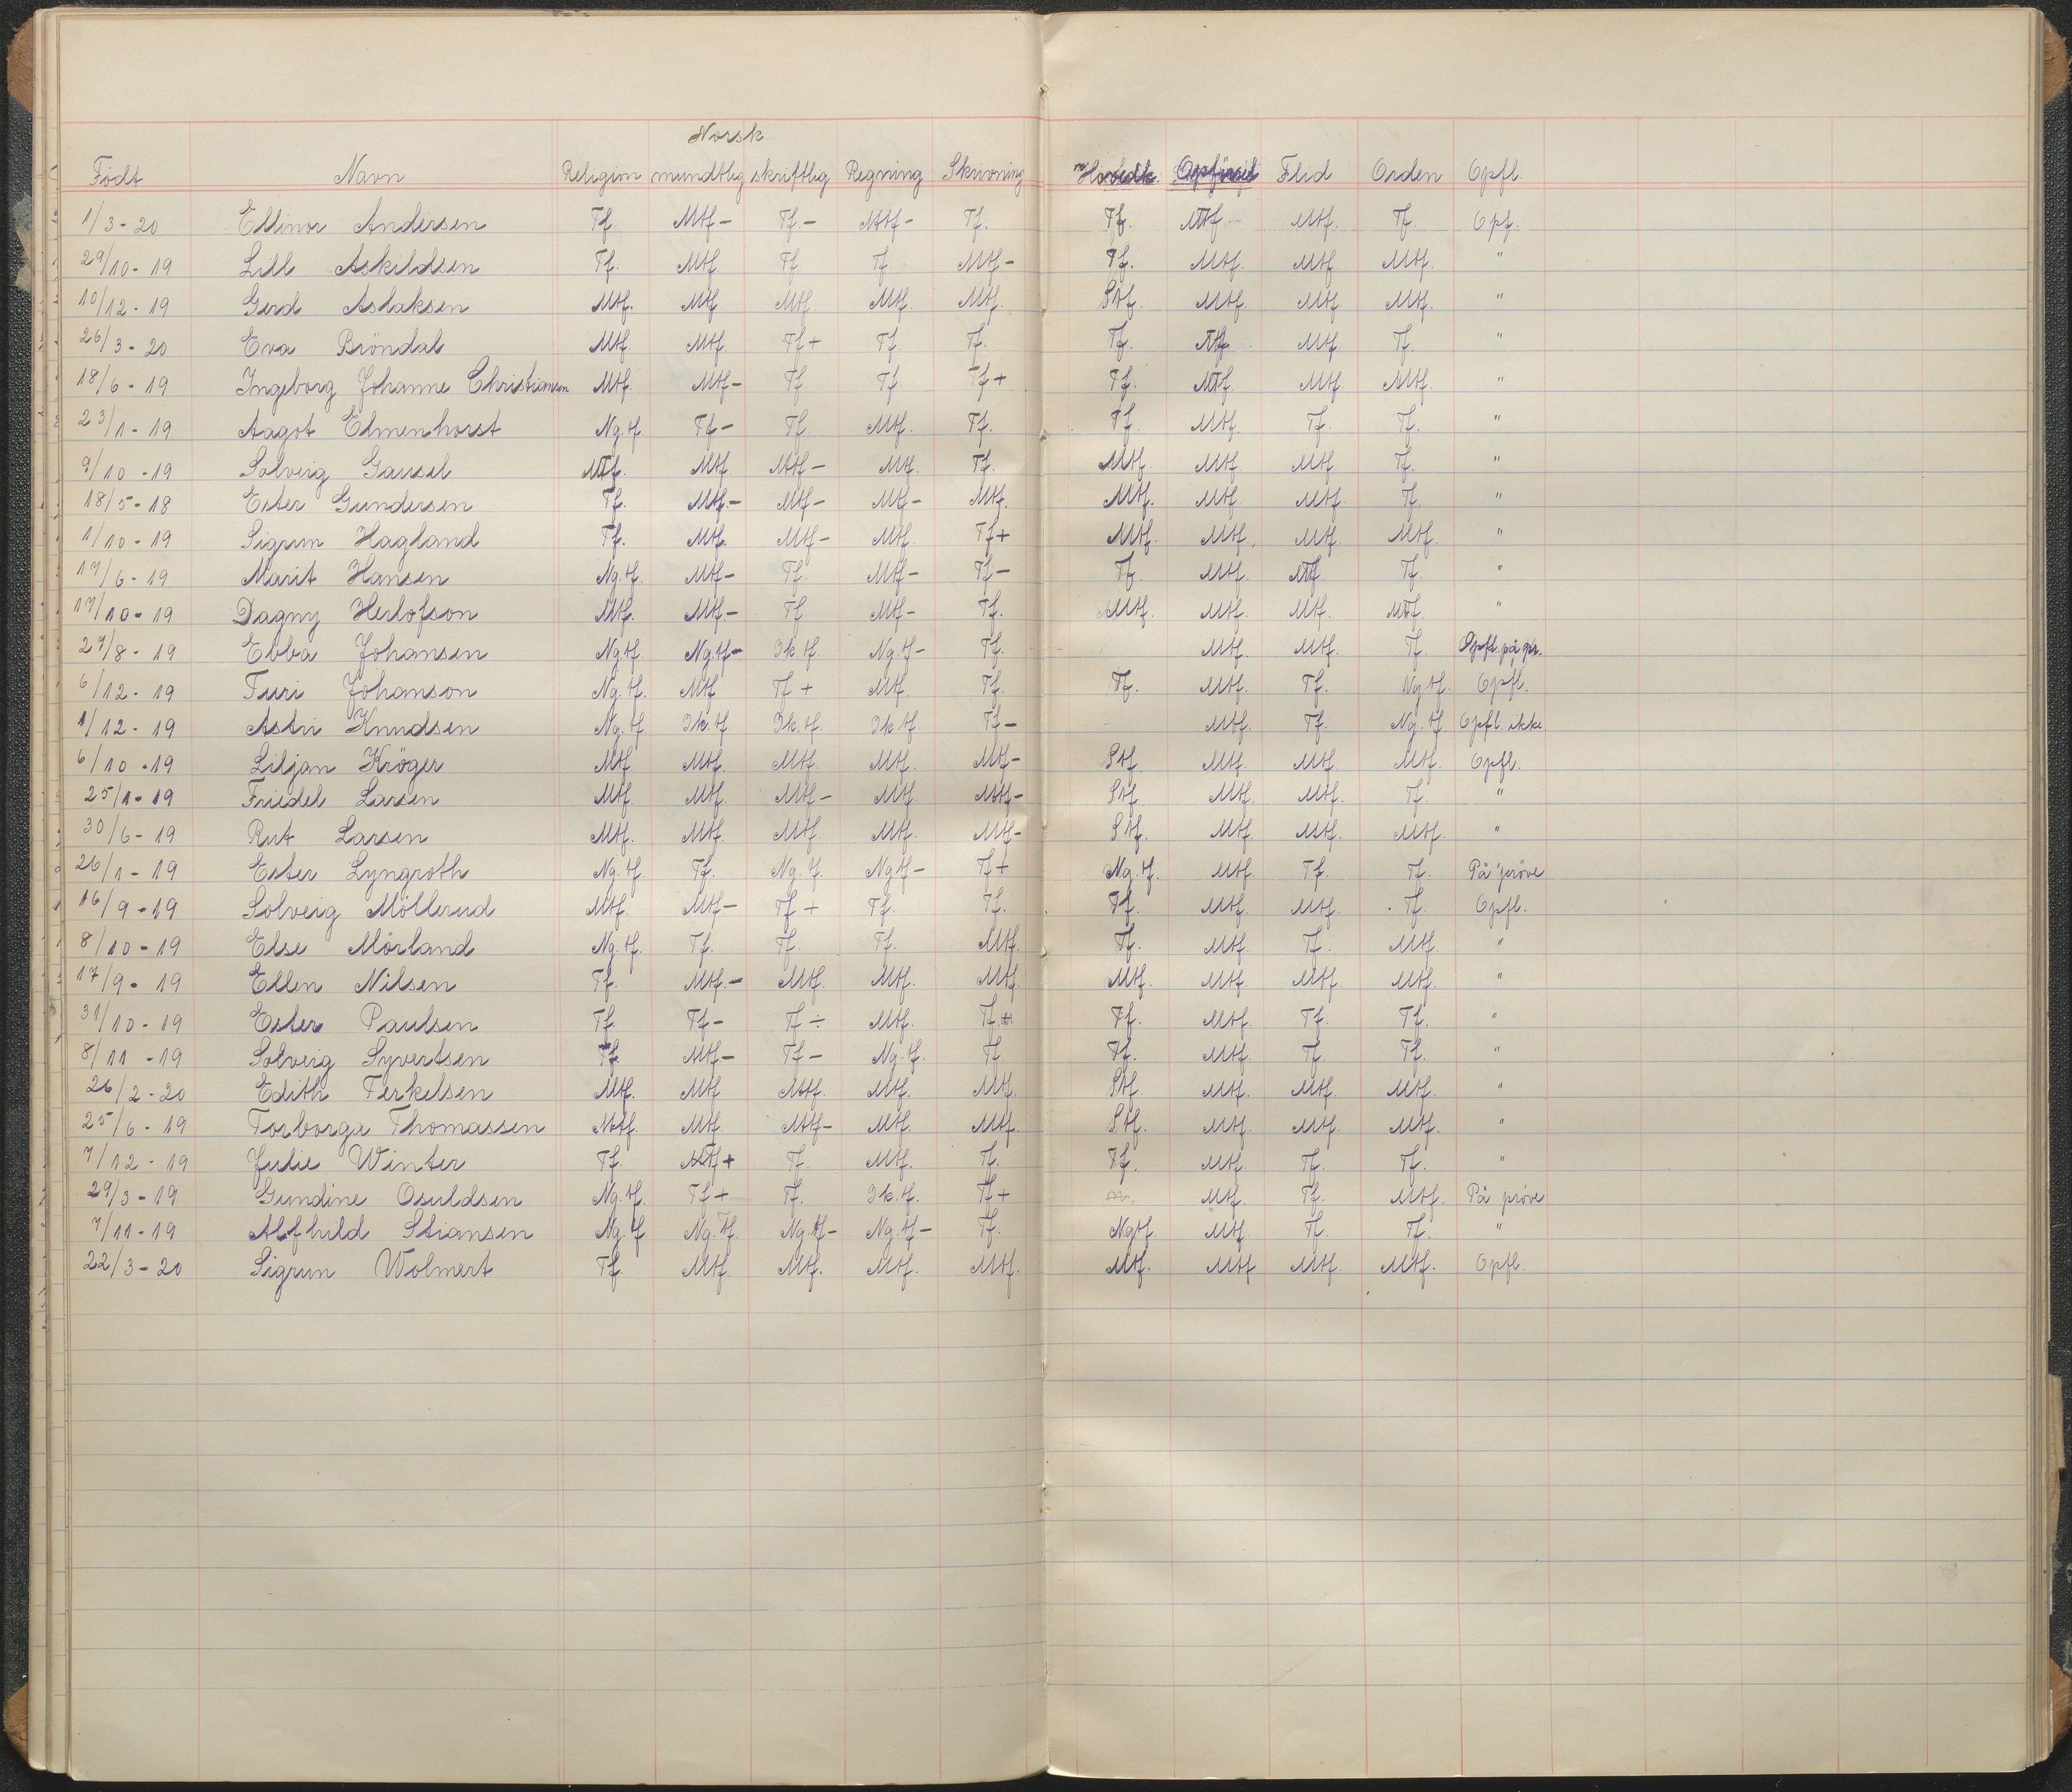 Norsk
Födt Navn Religion mundtlig skriftlig Regning Skrivning Hovedk. Opförsel Flid Orden Opfl.
1/3-20 Ellinor Andersen Tf. Mtf- Tf.- Mtf- Tf. Tf. Mtf Mtf. Tf. Opf.
29/10-19 Lill Askildsen Tf. Mtf Tf Tf Mtf- Tf. Mtf. Mtf. Mtf. "
10/12-19 Gerd Aslaksen Mtf. Mtf Mtf Mtf. Mtf. Stf. Mtf. Mtf Mtf. "
26/3-20 Eva Bröndal Mtf. Mtf. Tf+ Tf. Tf. Tf. Mtf. Mtf. Tf. "
18/6-19 Ingeborg Johanne Christiansen Mtf. Mtf- Tf. Tf. Tf+ Tf. Mtf. Mtf. Mtf. "
23/1-19 Aagot Elmenhorst Ng.tf. Tf- Tf. Mtf. Tf. Tf. Mtf. Tf. Tf. "
9/10-19 Solveig Gausel Mtf. Mtf. Mtf- Mtf. Tf. Mtf. Mtf. Mtf Tf. "
18/5-18 Ester Gundersen Tf. Mtf.- Mtf- Mtf- Mtf. Mtf. Mtf. Mtf. Tf. "
1/10-19 Sigrun Hagland Tf. Mtf. Mtf- Mtf. Tf+ Mtf. Mtf. Mtf. Mtf. "
17/6-19 Marit Hansen Ng.tf. Mtf- Tf. Mtf- Tf- Tf. Mtf. Mtf Tf. "
17/10-19 Dagny Herlofson Mtf. Mtf- Tf. Mtf- Tf. Mtf. Mtf. Mtf. Mtf. "
27/8-19 Ebba Johansen Ng.tf. Ng.tf- Ik.tf. Ng.tf- Tf. Mtf. Mtf. Tf. Opfl. på pr.
6/12-19 Turi Johanson Ng.tf. Mtf Tf+ Mtf. Tf. Tf. Mtf. Tf. Ng.tf. Opfl.
1/12-19 Astri Knudsen Ng.tf. Ik.tf. Ik.tf. Ik.tf Tf- Mtf. Tf. Ng.tf Opfl. ikke
6/10-19 Liljan Kröger Mtf. Mtf. Mtf. Mtf. Mtf- Stf. Mtf. Mtf. Mtf. Opfl.
25/1-19 Friedel Larsen Mtf. Mtf. Mtf- Mtf. Mtf- Stf. Mtf. Mtf. Tf "
30/6-19 Rut Larsen Mtf. Mtf. Mtf. Mtf. Mtf- Stf. Mtf. Mtf. Mtf. "
26/1-19 Ester Lyngroth Ng.tf. Tf. Ng.tf. Ngtf- Tf+ Ng.tf. Mtf Tf. Tf. På pröve
16/9-19 Solveig Möllerud Mtf. Mtf- Tf+ Tf. Tf. Tf. Mtf. Mtf. Tf. Opfl.
8/10-19 Else Mörland Ng.tf. Tf. Tf. Tf. Mtf. Tf. Mtf. Tf. Mtf. "
17/9-19 Ellen Nilsen Tf. Mtf.- Mtf. Mtf. Mtf. Mtf. Mtf. Mtf. Mtf. "
31/10-19 Ester Paulsen Tf. Tf- Tf÷ Mtf. Tf.+ Tf. Mtf. Tf. Tf. "
8/11-19 Solveig Syvertsen Tf. Mtf- Tf- Ng.tf. Tf. Tf. Mtf. Tf. Tf. "
26/2-20 Edith Terkelsen Mtf. Mtf Mtf. Mtf. Mtf. Stf. Mtf. Mtf. Mtf. "
25/6-19 Torborga Thomassen Mtf Mtf. Mtf- Mtf. Mtf. Stf. Mtf. Mtf. Mtf. "
7/12-19 Julie Winter Tf. Mtf+ Tf. Mtf. Tf. Tf. Mtf. Tf. Tf. "
29/3-19 Gundine Osuldsen Ng.tf. Tf+ Tf. Ik.tf. Tf+ Mtf. Tf. Mtf. På pröve
7/11-19 Alfhild Stiansen Ng.tf Ng.tf. Ng.tf- Ng.tf- Tf. Ngtf. Mtf. Tf. Tf. "
22/3-20 Sigrun Wolmert Tf. Mtf. Mtf. Mtf. Mtf. Mtf. Mtf Mtf. Mtf. Opfl.